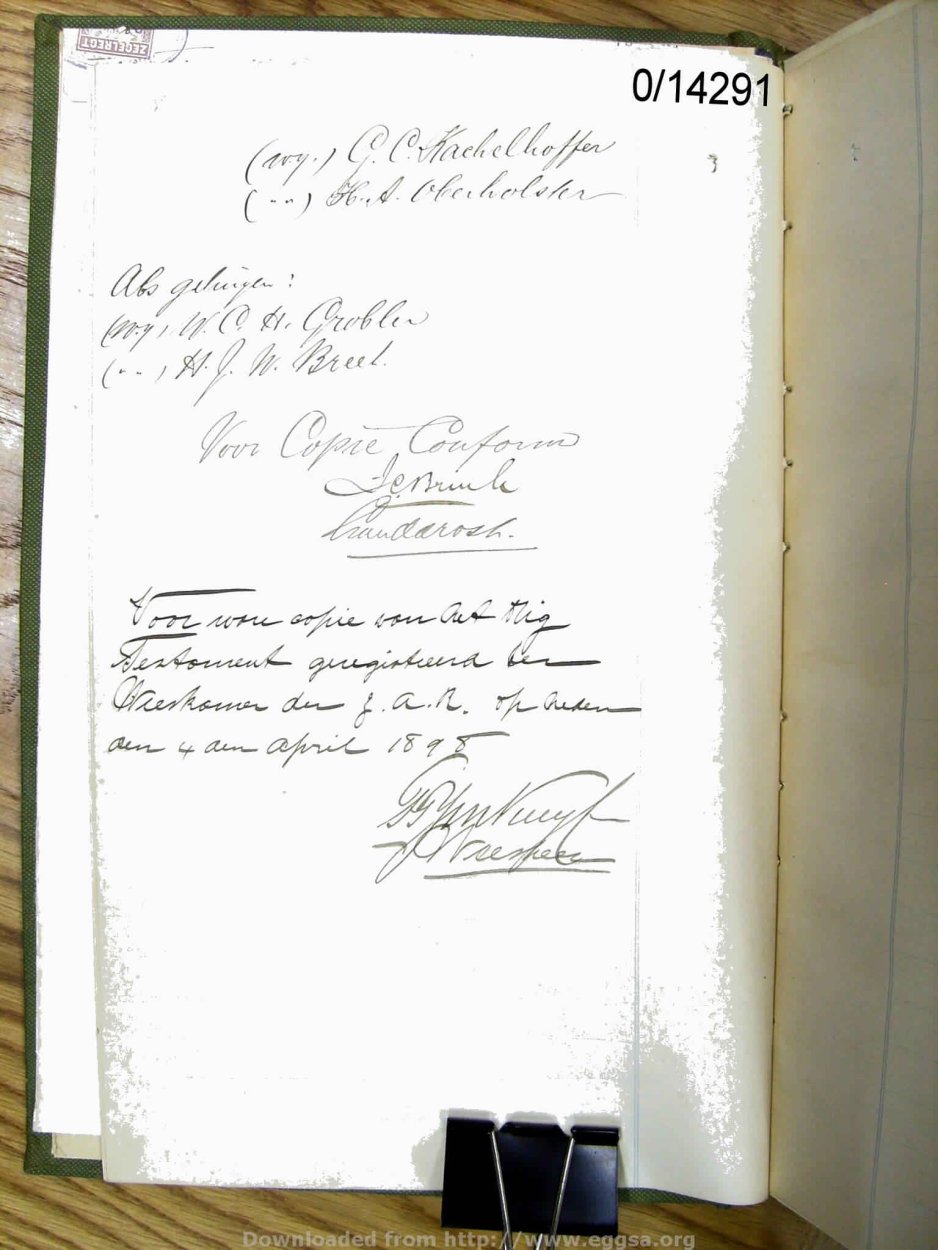 ZEGELREGT
0/14291
(wg.) G. C. Kachelhoffer
3
( " " ) H. A. Oberholster
Als getuigen :
(wg.) W. C. H. Grobler
( " " ) H. J. W. Breet.
Voor Copie Conform
Landdrost.
Voor ware copie van het Orig
Testament geregistreerd ter
Weeskamer der Z. A. R. op heden
den 4 den April 1898
Weesheer
Downloaded from http://www.eggsa.org